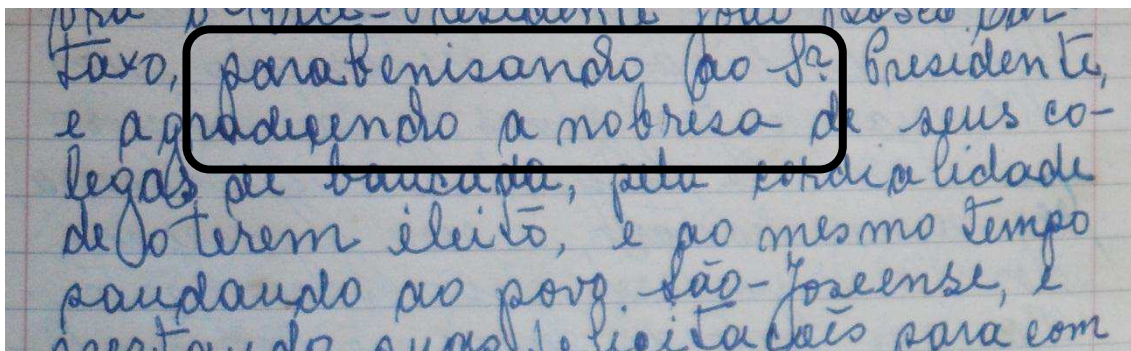 pra o Vice-Presidente João
taxo, parabenisando ao Sr. Presidente,
e agradecendo a nobresa de seus co-
legas de bancada, pela cordialidade
de o terem eleito, e ao mesmo tempo
saudando ao povo São-Joseense, e
suas felicitações para com